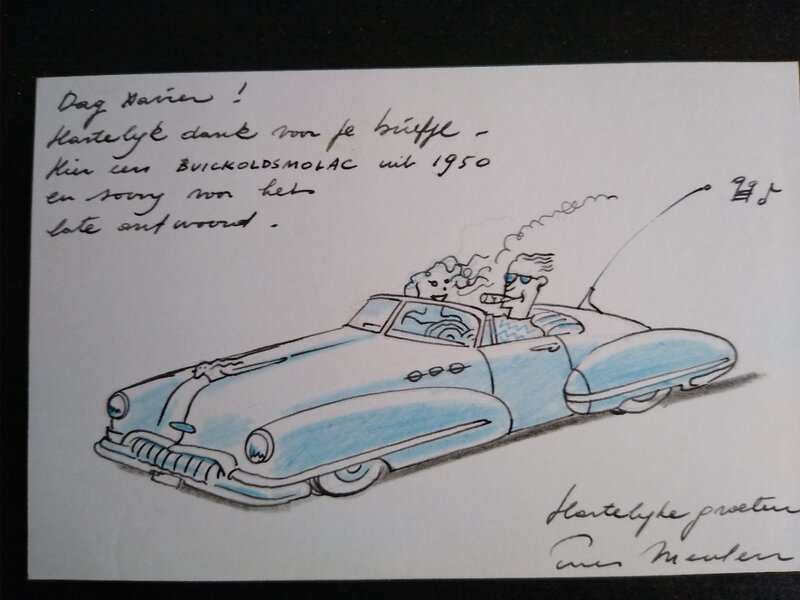 Dag Xavier !
Hartelijk dank voor je briefje -
Hier een BUICKOLDSMOLAC uit 1950
en sorry voor het
late antwoord .
Hartelijke groeten
Meulen